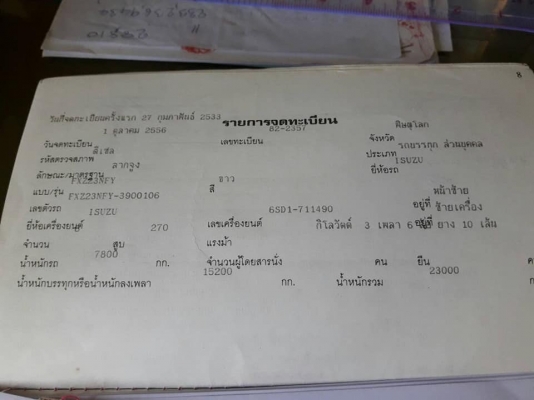 8
วันที่จดทะเบียนครั้งแรก 27 กุมภาพันธ์ 2533 รายการจดทะเบียน
1 ตุลาคม 2556 82-2357 พิษณุโลก
วันจดทะเบียน เลขทะเบียน จังหวัด
ดีเซล รถบรรทุก ส่วนบุคคล
รหัสตรวจสภาพ ประเภท
ลากจูง ISUZU
ลักษณะ/มาตรฐาน ยี่ห้อรถ
FXZ23NFY ขาว
แบบ/รุ่น สี
FXZ23NFY-3900106 หน้าซ้าย
เลขตัวรถ อยู่ที่
ISUZU 6SD1-711490 ซ้ายเครื่อง
ยี่ห้อเครื่องยนต์ เลขเครื่องยนต์ อยู่ที่
270 กิโลวัตต์ 3 เพลา 6 ยาง 10 เส้น
จำนวน สูบ แรงม้า
7800
น้ำหนักรถ กก. จำนวนผู้โดยสารนั่ง คน ยืน ค
15200 23000
น้ำหนักบรรทุกหรือน้ำหนักลงเพลา กก. น้ำหนักรวม ก